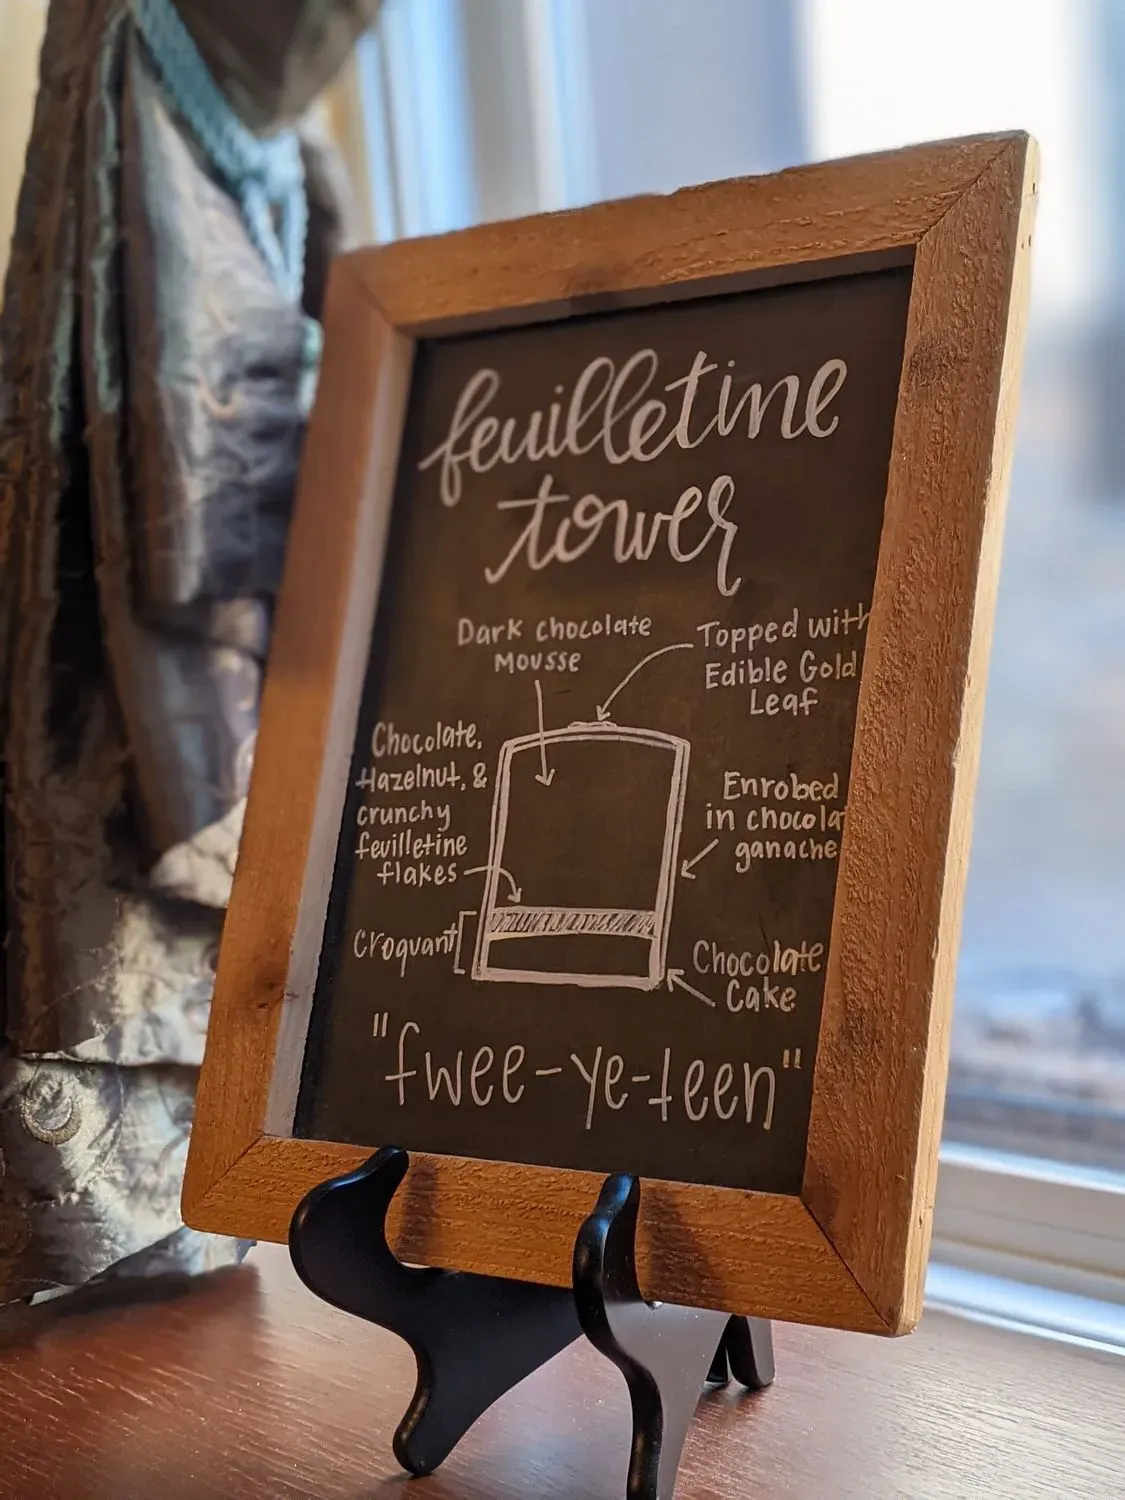 feuilletine
tower
Dark chocolate
mousse
Topped with
Edible Gold
Leaf
Chocolate,
Hazelnut, &
crunchy
feuilletine
flakes
Enrobed
in chocola
ganache
Croquant
Chocolate
Cake
"fwee-ye-teen"